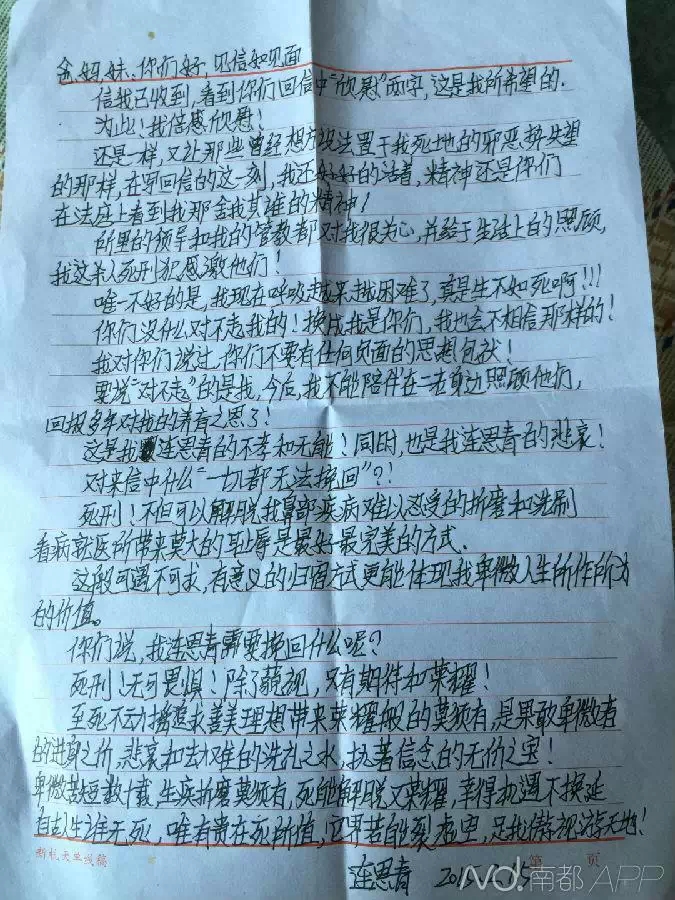 爸、妈、妹、你们好，见信如见面
信我已收到，看到你们回信中“欣慰”两字，这是我所希望的.
为此！我倍感欣慰！
还是一样，又让那些曾经想方设法置于我死地的邪恶势失望
的那样，在写回信的这一刻，我还好好的活着，精神还是你们
在法庭上看到我那舍我其谁的精神！
所里的领导和我的管教都对我很关心，并给于生活上的照顾，
我这杀人死刑犯感激他们！
唯一不好的是，我现在呼吸越来越困难了，真是生不如死啊！！！
你们没什么对不起我的！换成我是你们，我也会不相信那样的！
我对你们说过，你们不要有任何负面的思想包袱！
要说“对不起”的是我，今后，我不能陪伴在二老身边照顾他们，
回报多年对我的养育之恩了！
这是我连恩青的不孝和无能！同时，也是我连恩青的悲哀！
对来信中什么“一切都无法挽回”？！
死刑！不但可以解脱我鼻部疾病难以忍受的折磨和洗刷
看病就医所带来莫大的耻辱是最好最完美的方式.
这般可遇不可求，有意义的归宿方式更能体现我卑微人生所作所为
的价值。
你们说，我连恩青需要挽回什么呢？
死刑！无可畏惧！除了藐视，只有期待和荣耀！
至死不动摇追求善美理想带来荣耀般的莫须有，是果敢卑微者
的进身之阶，悲哀和去权难的洗礼之水，执著信念的无价之宝！
卑微苦短数十载，生疾折磨莫须有，死能解脱又荣耀，幸得机遇不换延
自古人生谁无死，唯有贵在死所值，它界若能裂虚空，足我傲视游天地！
连恩青 2015
新航天丝线稿 第 页
南都APP